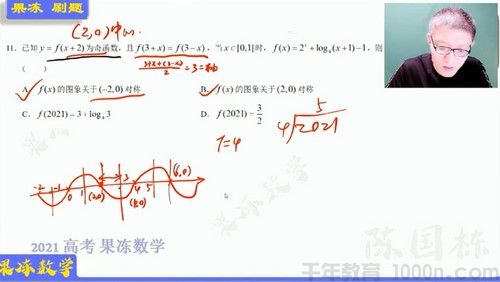 果冻 刷题
(2,0)中心
11. 已知 y=f(x+2)为奇函数，且 f(3+x)=f(3−x)，当 x∈[0,1]时，f(x)=2^x+log₄(x+1)−1，则
3+x+(3-x)/2=3=轴
( )
A. f(x)的图象关于(−2,0)对称
B. f(x)的图象关于(2,0)对称
C. f(2021)=3+log₄3
D. f(2021)=3/2
5
4 2021
T=4
-2 -1 0 1 (2,0) 3 4 5 (6,0)
(4,0)
果冻数学
2021 高考 果冻数学
陈国栋
果冻数学
千年教育 1000n.com